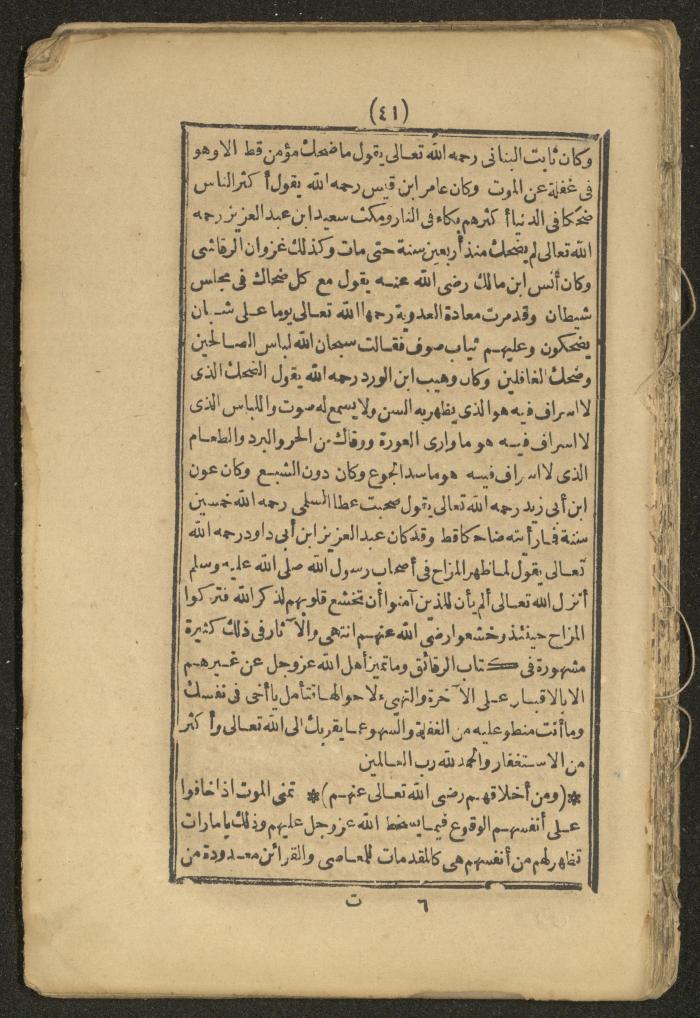 (٤١)
وكان ثابت البنانى رحمه الله تعالى يقول ما ضحك مؤمن قط الا وهو
فى غفلة عن الموت وكان عامر ابن قيس رحمه الله يقول أكثر الناس
ضحكا فى الدنيا أكثرهم بكاء فى النار ومكث سعيد ابن عبد العزيز رحمه
الله تعالى لم يضحك منذ أربعين سنة حتى مات وكذلك غزوان الرقاشى
وكان أنس ابن مالك رضى الله عنه يقول مع كل ضحاك فى مجلس
شيطان وقد مرت معادة العدوية رحمها الله تعالى يوما على شبان
يضحكون وعليهم ثياب صوف فقالت سبحان الله لباس الصالحين
وضحك الغافلين وكان وهيب ابن الورد رحمه الله يقول الضحك الذى
لا اسراف فيه هو الذى يظهر به السن ولا يسمع له صوت واللباس الذى
لا اسراف فيه هو ما وارى العورة ووقاك من الحر والبرد والطعام
الذى لا اسراف فيه هو ما سد الجوع وكان دون الشبع وكان عون
ابن أبى زيد رحمه الله تعالى يقول صحبت عطا السلمى رحمه الله خمسين
سنة فما رأيته ضاحكا قط وقد كان عبد العزيز ابن أبى داود رحمه الله
تعالى يقول لما ظهر المزاح فى أصحاب رسول الله صلى الله عليه وسلم
أنزل الله تعالى ألم يأن للذين آمنوا أن تخشع قلوبهم لذكر الله فتركوا
المزاح حينئذ وخشعوا رضى الله عنهم انتهى والآثار فى ذلك كثيرة
مشهورة فى كتاب الرقائق وما تميز أهل الله عز وجل عن غيرهم
الا بالاقبال على الآخرة والتهيء لاحوالها فتأمل يا أخى فى نفسك
وما أنت منطو عليه من الغفلة والسهو عما يقربك الى الله تعالى وأكثر
من الاستغفار والحمد لله رب العالمين
*(ومن أخلاقهم رضى الله تعالى عنهم)* تمنى الموت اذا خافوا
على أنفسهم الوقوع فيما يسخط الله عز وجل عليهم وذلك بامارات
تظهر لهم من أنفسهم هى كالمقدمات للمعاصى والقرائن معدودة من
٦ ت